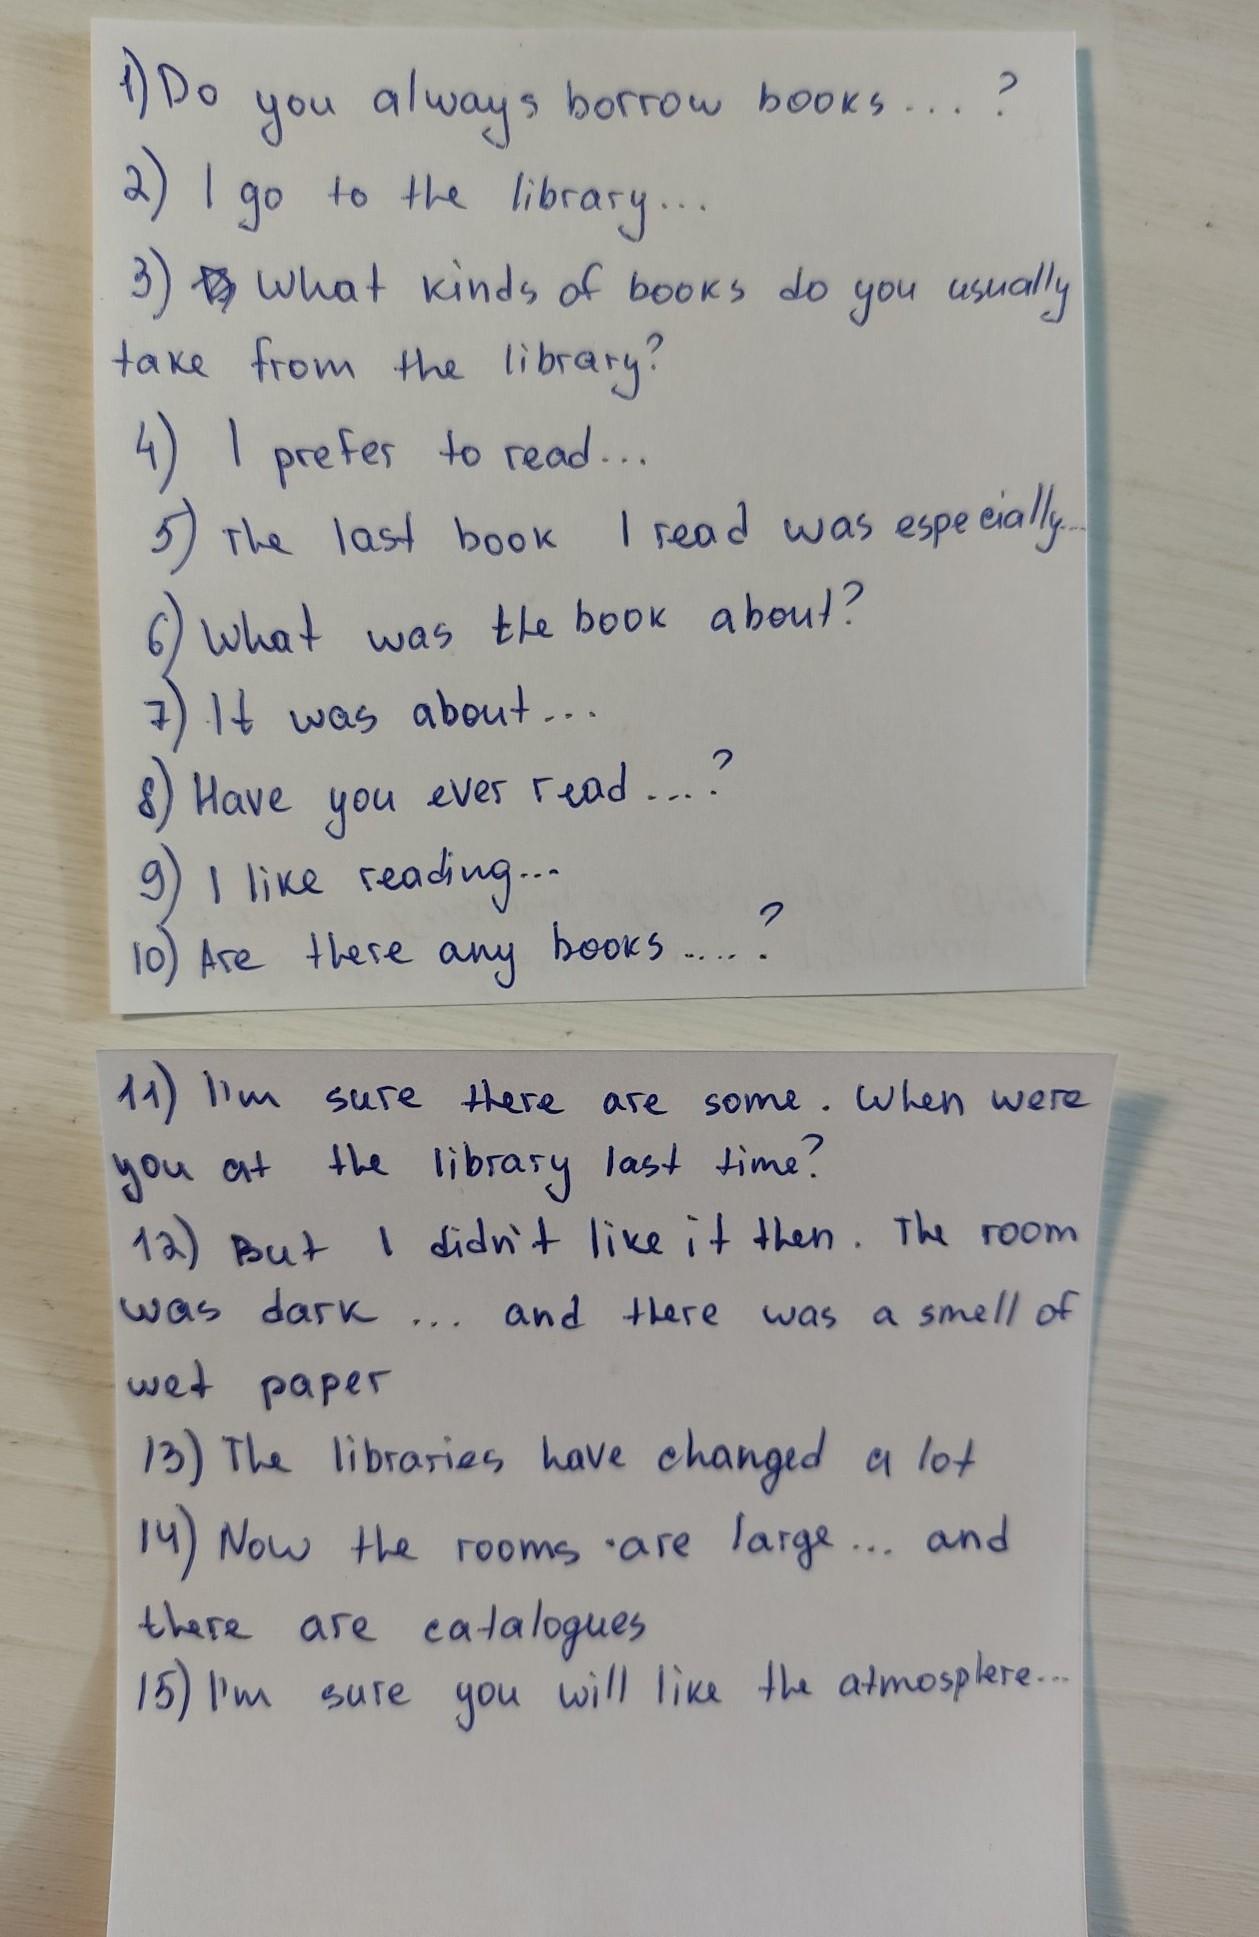 1) Do you always borrow books... ?
2) I go to the library...
3) What kinds of books do you usually
take from the library?
4) I prefer to read...
5) The last book I read was especially...
6) What was the book about?
7) It was about...
8) Have you ever read ....?
9) I like reading...
10) Are there any books .....?
11) I'm sure there are some. When were
you at the library last time?
12) But I didn't like it then. The room
was dark ... and there was a smell of
wet paper
13) The libraries have changed a lot
14) Now the rooms are large... and
there are catalogues
15) I'm sure you will like the atmosphere...